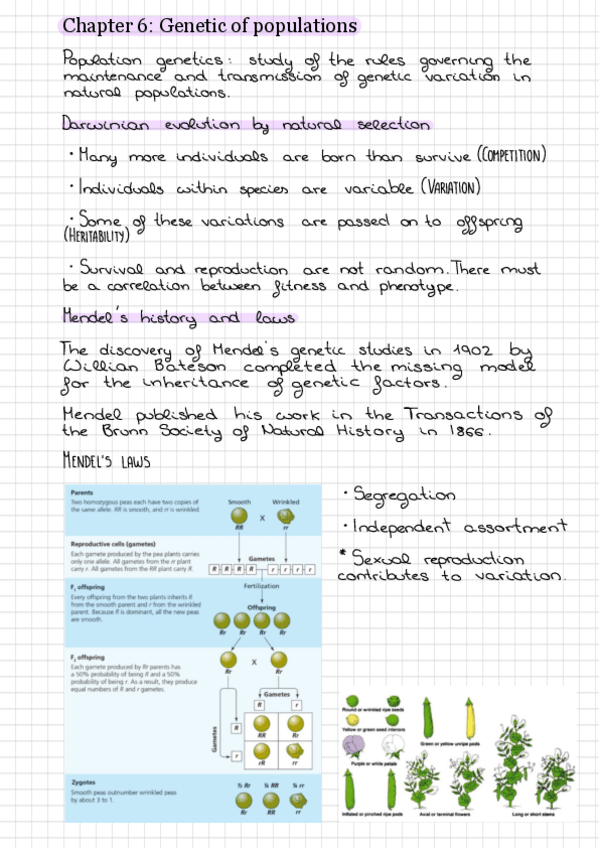 Chapter 6: Genetic of populations
Population genetics: study of the rules governing the
maintenance and transmission of genetic variation in
natural populations.
Darwinian evolution by natural selection
· Many more individuals are born than survive (COMPETITION)
· Individuals within species are variable (VARIATION)
· Some of these variations are passed on to offspring
(HERITABILITY)
· Survival and reproduction are not random. There must
be a correlation between fitness and phenotype.
Mendel's history and laws
The discovery of Mendel's genetic studies in 1902 by
Willian Bateson completed the missing model
for the inheritance of genetic factors.
Mendel published his work in the Transactions of
the Brunn Society of Natural History in 1866.
MENDEL'S LAWS
· Segregation
· Independent assortment
* Sexual reproduction
contributes to variation.
Parents
Two homozygous peas each have two copies of
the same allele. RR is smooth, and rr is wrinkled.
Smooth Wrinkled
X
RR rr
Reproductive cells (gametes)
Each gamete produced by the pea plants carries
only one allele. All gametes from the rr plant
carry r. All gametes from the RR plant carry R.
Gametes
R R R R r r r r
F1 offspring
Every offspring from the two plants inherits R
from the smooth parent and r from the wrinkled
parent. Because R is dominant, all the new peas
are smooth.
Fertilization
Offspring
Rr Rr Rr Rr
F2 offspring
Each gamete produced by Rr parents has
a 50% probability of being R and a 50%
probability of being r. As a result, they produce
equal numbers of R and r gametes.
X
Rr Rr
Gametes
R r
Gametes
R
RR Rr
r
rR rr
Zygotes
Smooth peas outnumber wrinkled peas
by about 3 to 1.
½ Rr ¼ RR ¼ rr
Rr RR rr
Round or wrinkled ripe seeds
Yellow or green seed interiors
Purple or white petals
Inflated or pinched ripe pods
Green or yellow unripe pods
Axial or terminal flowers
Long or short stems